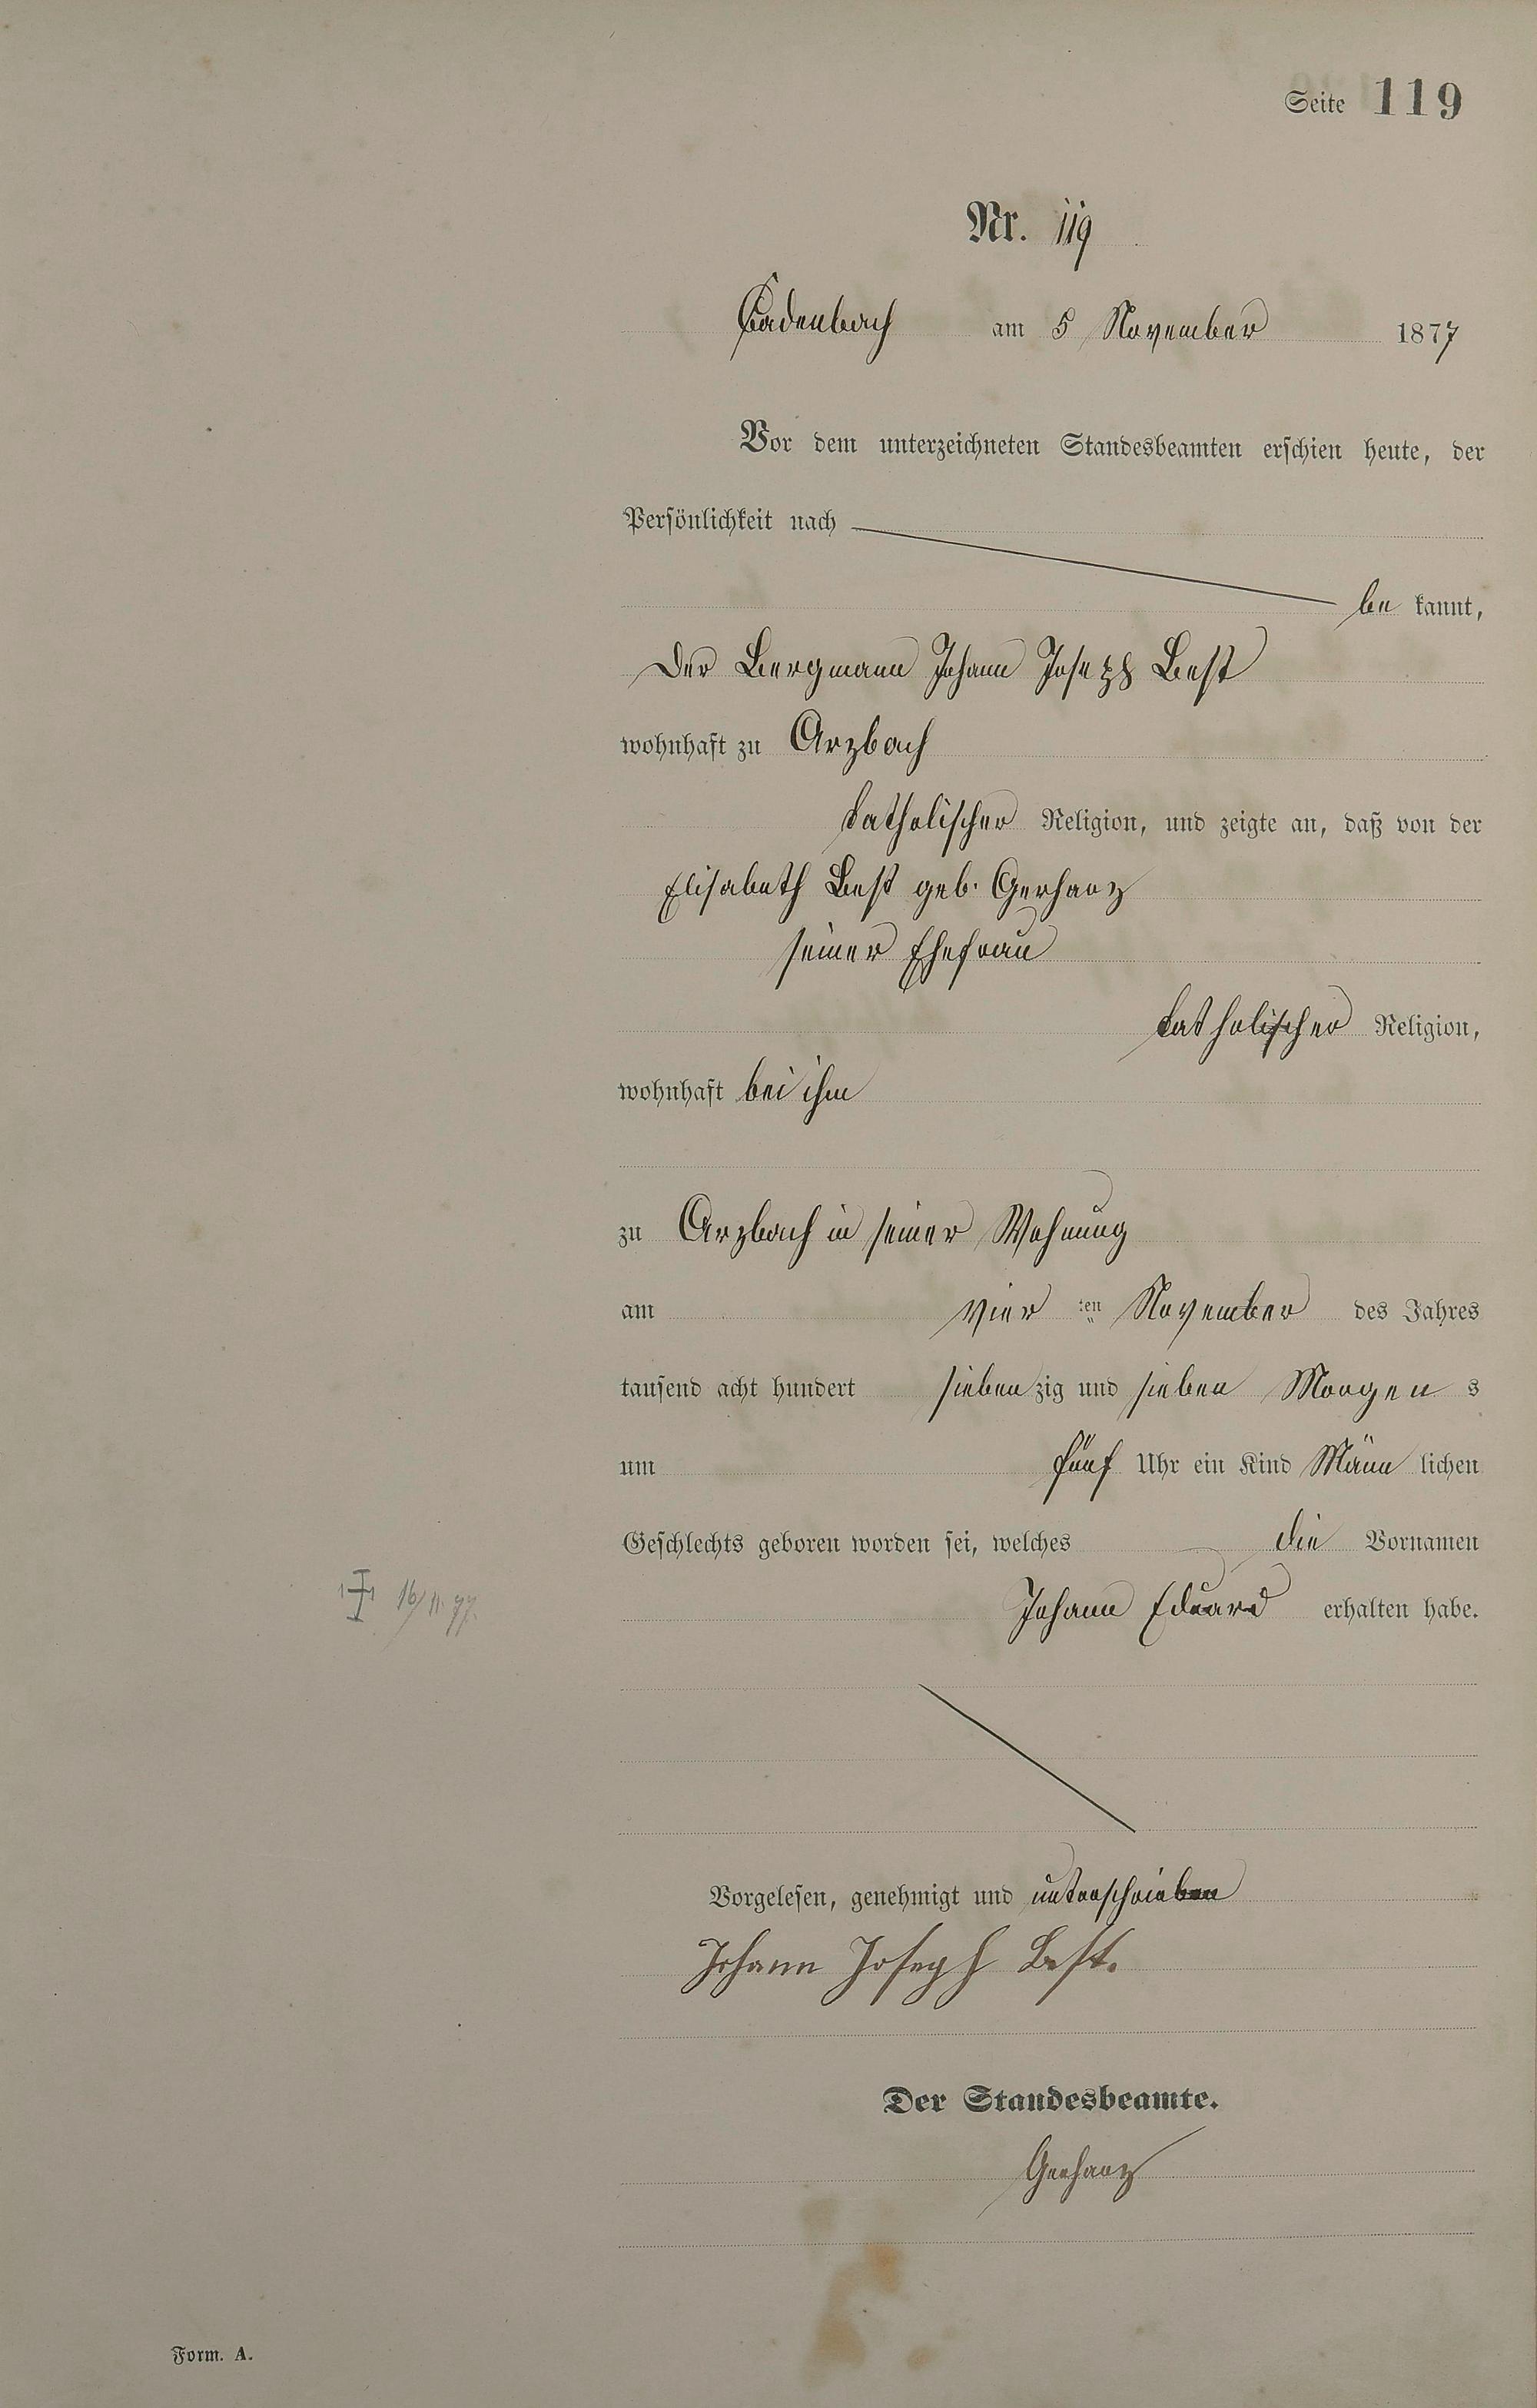 Seite 119
Nr. 119
Cadenbach am 5 November 1877
Vor dem unterzeichneten Standesbeamten erschien heute, der
Persönlichkeit nach
be kannt,
Der Bergmann Johann Joseph Best
wohnhaft zu Arzbach
katholischer Religion, und zeigte an, daß von der
Elisabeth Best geb. Gerharz
seiner Ehefrau
katholischer Religion,
wohnhaft bei ihm
zu Arzbach in seiner Wohnung
am vier ten November des Jahres
tausend acht hundert sieben zig und sieben Morgen s
um fünf Uhr ein Kind Männ lichen
Geschlechts geboren worden sei, welches die Vornamen
16/11.77.
Johann Eduard erhalten habe.
Vorgelesen, genehmigt und unterschrieben
Johann Joseph Best.
Der Standesbeamte.
Gerharz
Form. A.